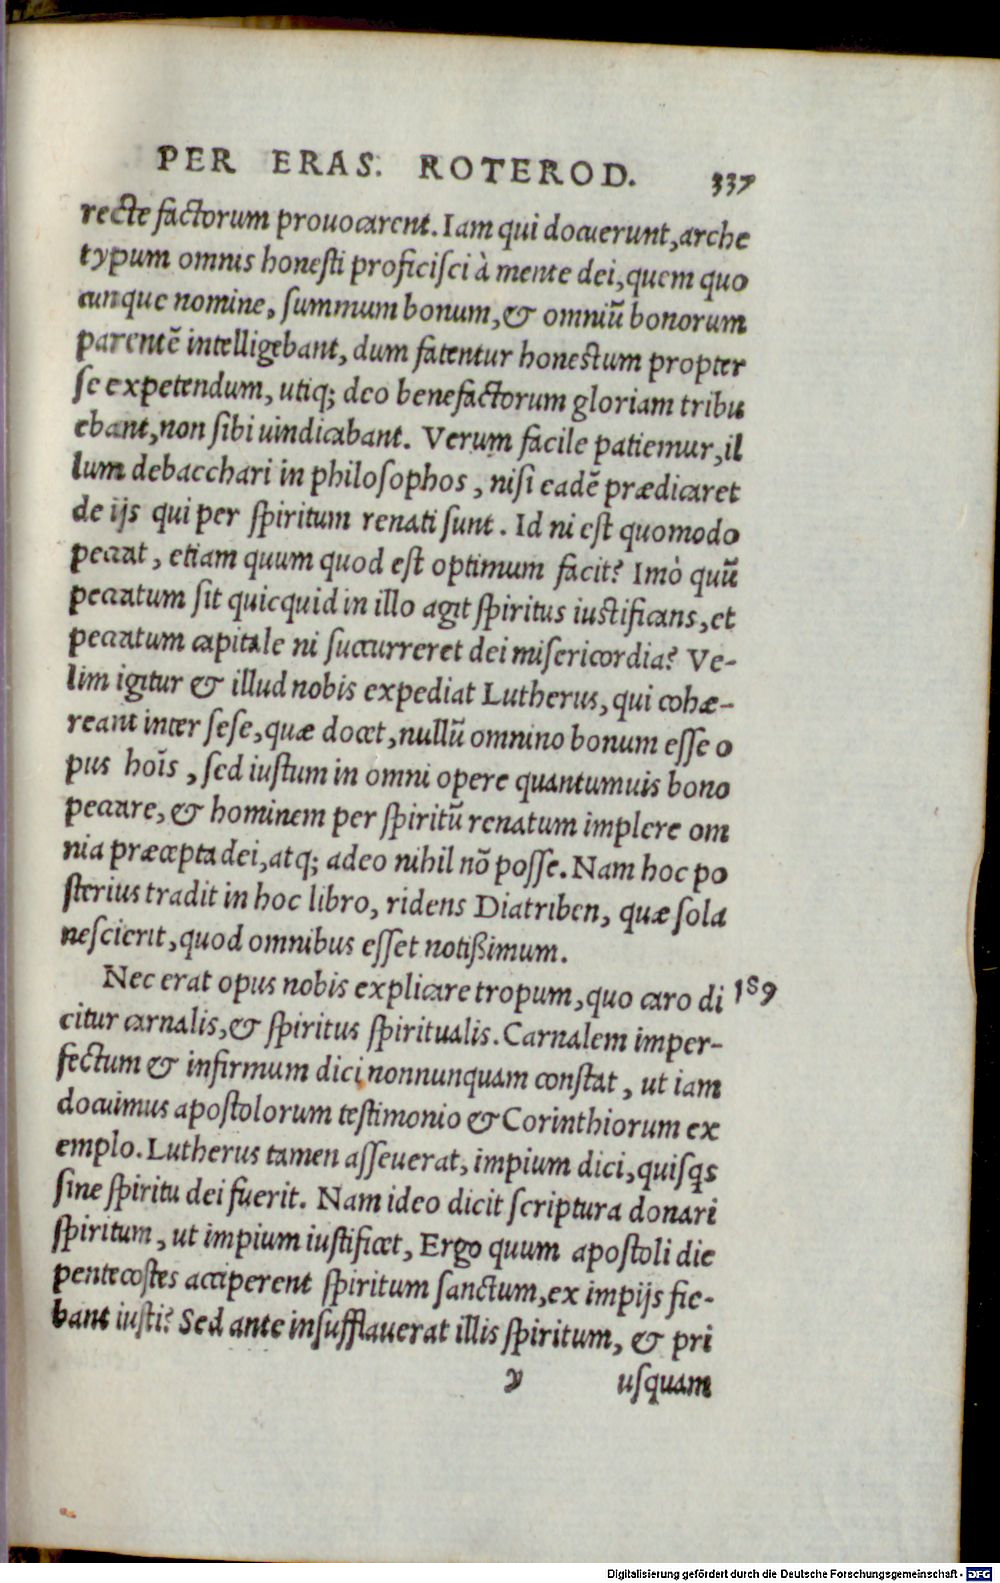 PER ERAS. ROTEROD. 337
recte factorum prouocarent. Iam qui docuerunt, arche
typum omnis honesti proficisci à mente dei, quem quo
cunque nomine, summum bonum, & omniũ bonorum
parentẽ intelligebant, dum fatentur honestum propter
se expetendum, utiq; deo benefactorum gloriam tribu
ebant, non sibi uindicabant. Verum facile patiemur, il
lum debacchari in philosophos, nisi eadẽ prædicaret
de ijs qui per spiritum renati sunt. Id ni est quomodo
peccat, etiam quum quod est optimum facit? Imò quũ
peccatum sit quicquid in illo agit spiritus iustificans, et
peccatum capitale ni succurreret dei misericordia? Ve-
lim igitur & illud nobis expediat Lutherus, qui cohæ-
reant inter sese, quæ docet, nullũ omnino bonum esse o
pus hoĩs, sed iustum in omni opere quantumuis bono
peccare, & hominem per spiritũ renatum implere om
nia præcepta dei, atq; adeo nihil nõ posse. Nam hoc po
sterius tradit in hoc libro, ridens Diatriben, quæ sola
nescierit, quod omnibus esset notißimum.
Nec erat opus nobis explicare tropum, quo caro di 189
citur carnalis, & spiritus spiritualis. Carnalem imper-
fectum & infirmum dici nonnunquam constat, ut iam
docuimus apostolorum testimonio & Corinthiorum ex
emplo. Lutherus tamen asseuerat, impium dici, quisqs
sine spiritu dei fuerit. Nam ideo dicit scriptura donari
spiritum, ut impium iustificet, Ergo quum apostoli die
pentecostes acciperent spiritum sanctum, ex impijs fie-
bant iusti? Sed ante insufflauerat illis spiritum, & pri
y usquam
Digitalisierung gefördert durch die Deutsche Forschungsgemeinschaft - DFG